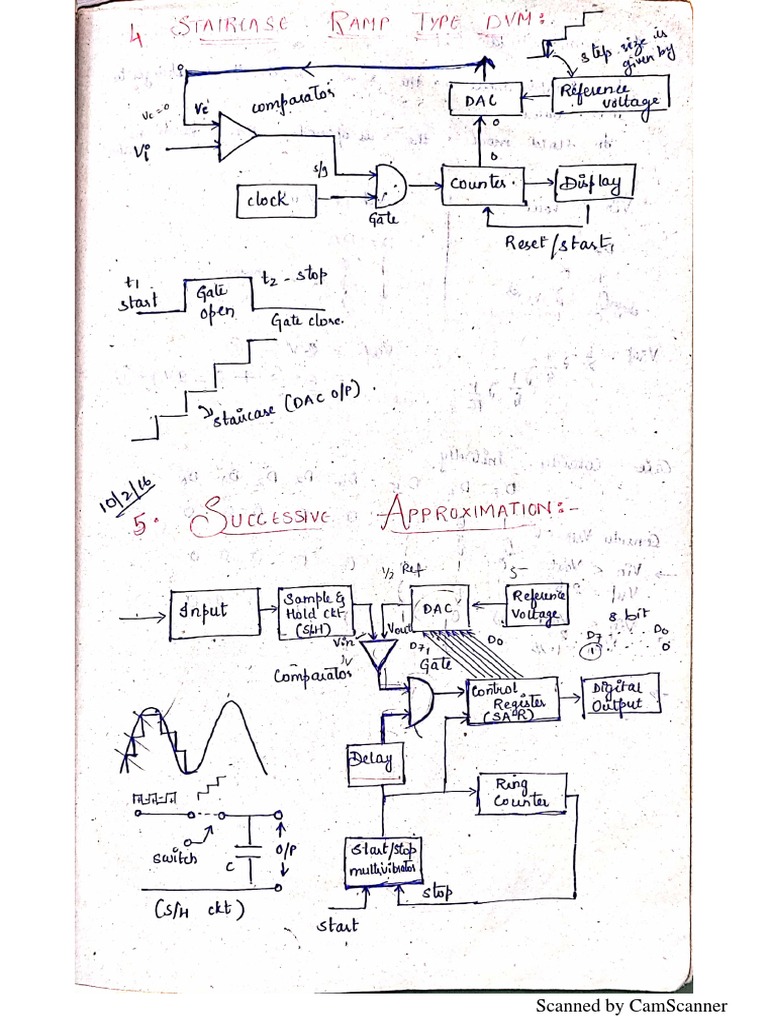 4 STAIRCASE RAMP TYPE DVM:-
step size is
given by
Vc=0
Vc
comparator
DAC
Reference
voltage
Vi
0
0
s/g
clock
Gate
Counter.
Display
Reset/start
t1
start
Gate
open
t2 - stop
Gate close.
staircase (DAC O/P).
10/2/16
5. SUCCESSIVE APPROXIMATION:-
1/2 Ref
5-
Input
Sample &
Hold ckt
(S/H)
DAC
Reference
Voltage
8 bit
Vin
Vout
D7
D0
D7
D0
1
0
Comparator
Gate
Control
Register
(SAR)
Digital
Output
Delay
Ring
Counter
switch
C
O/P
(S/H ckt)
Start/stop
multivibrator
stop
start
Scanned by CamScanner